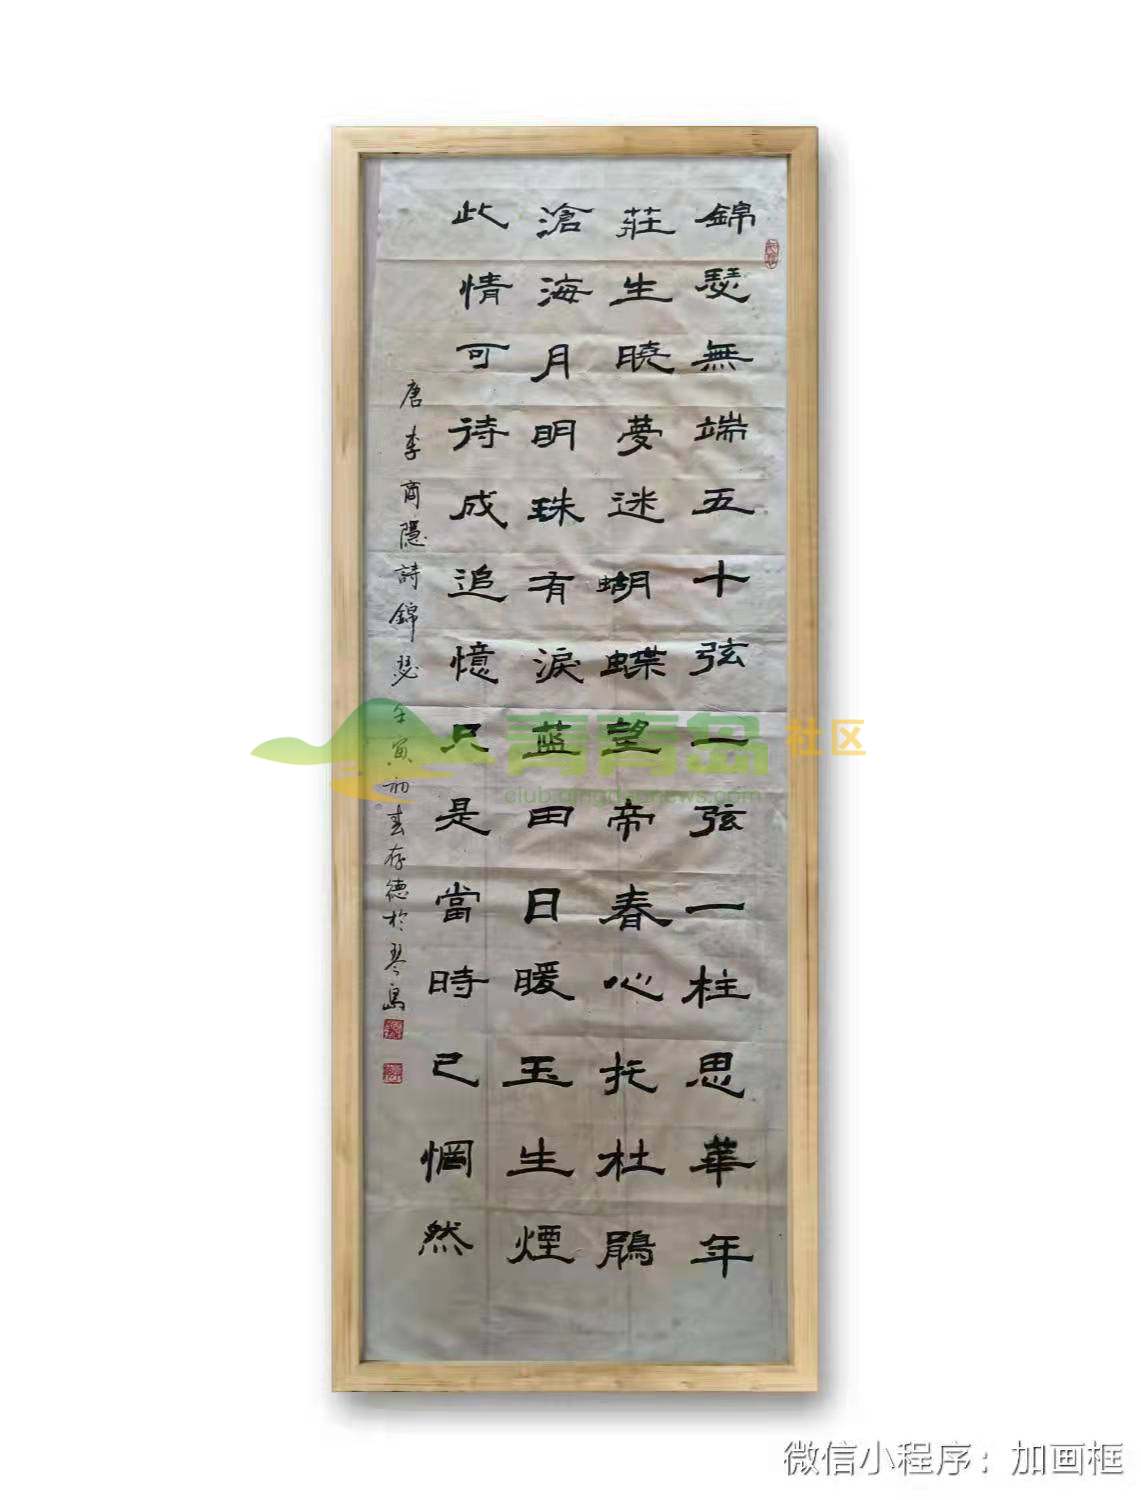 錦瑟無端五十弦一弦一柱思華年
莊生曉夢迷蝴蝶望帝春心托杜鵑
滄海月明珠有淚蓝田日暖玉生煙
此情可待成追憶只是當時已惘然
唐李商隱詩錦瑟壬寅初春存德於琴島
青青岛社区
club.qingdaonews.com
微信小程序：加画框